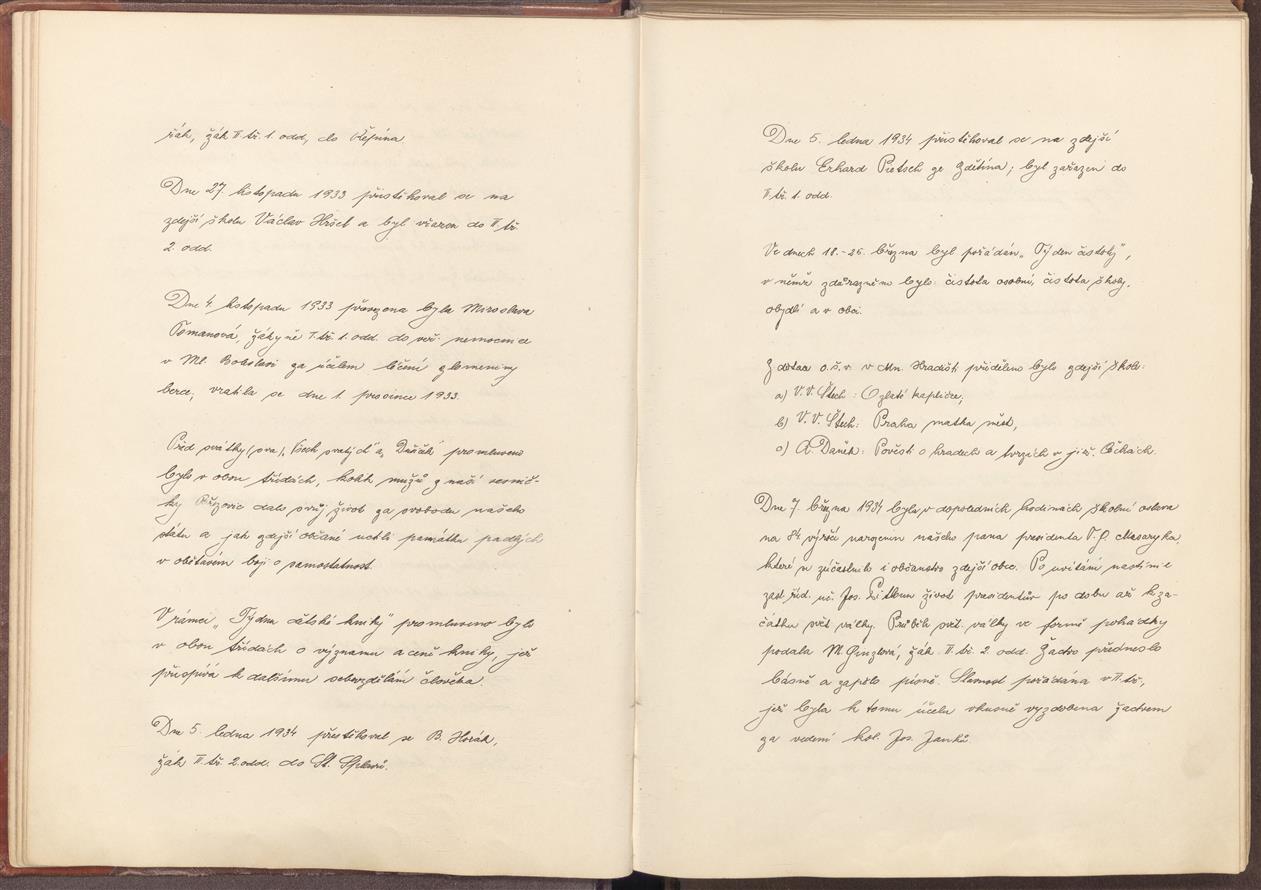 řák, žák II. tř. 1. odd., do Řepína.
Dne 27. listopadu 1933 přistěhoval se na
zdejší školu Václav Hršel a byl vřazen do II. tř.
2. odd.
Dne 4. listopadu 1933 převezena byla Miroslava
Tomanová, žákyně I. tř. 1. odd. do veř. nemocnice
v Ml. Boleslavi za účelem léčení zlomeniny
berce; vrátila se dne 1. prosince 1933.
Před svátky (sva) „Všech svatých" a „Dušiček" promluveno
bylo v obou třídách, kolik mužů z naší vesnič-
ky Březovic dalo svůj život za svobodu našeho
státu a jak zdejší občané uctili památku padlých
v obětavém boji o samostatnost.
V rámci „Týdnu dětské knihy" promluveno bylo
v obou třídách o významu a ceně knihy, jež
přispívá k dalšímu sebevzdělání člověka.
Dne 5. ledna 1934 přestěhoval se B. Horák,
žák II. tř. 2. odd. do St. Splavů.
Dne 5. ledna 1934 přistěhoval se na zdejší
školu Erhard Pietsch ze Zdětína; byl zařazen do
II. tř. 1. odd.
Ve dnech 18.-25. března byl pořádán „Týden čistoty",
v němž zdůrazněno bylo: čistota osobní, čistota školy,
obydlí a v obci.
Z dotace o. š. v. v Mn. Hradišti přiděleno bylo zdejší škole:
a) V. V. Štech: O zlaté kapličce,
b) V. V. Štech: Praha matka měst,
c) A. Daněk: Pověsti o hradech a tvrzích v již. Čechách.
Dne 7. března 1934 byla v dopoledních hodinách školní oslava
na 84. výročí narozenin našeho pana presidenta T. G. Masaryka,
které se zúčastnilo i občanstvo zdejší obce. Po uvítání nastínil
zast. říd. uč. Jos. život presidentův po dobu až k za-
čátku svět. války. Průběh svět. války ve formě pohádky
podala M. Ginzlová, žák. II. tř. 2. odd. Žactvo předneslo
básně a zapělo písně. Slavnost pořádána v II. tř.,
jež byla k tomu účelu vkusně vyzdobena žactvem
za vedení kol. Jos. Janků.